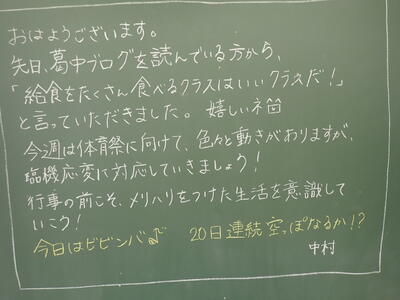 おはようございます。
先日、葛中ブログを読んでいる方から、
「給食をたくさん食べるクラスはいいクラスだ!」
と言っていただきました。嬉しいネ
今週は体育祭に向けて、色々と動きがありますが、
臨機応変に対応していきましょう!
行事の前こそ、メリハリをつけた生活を意識して
いこう!
今日はビビンバ♪ 20日連続空っぽなるか!?
中村